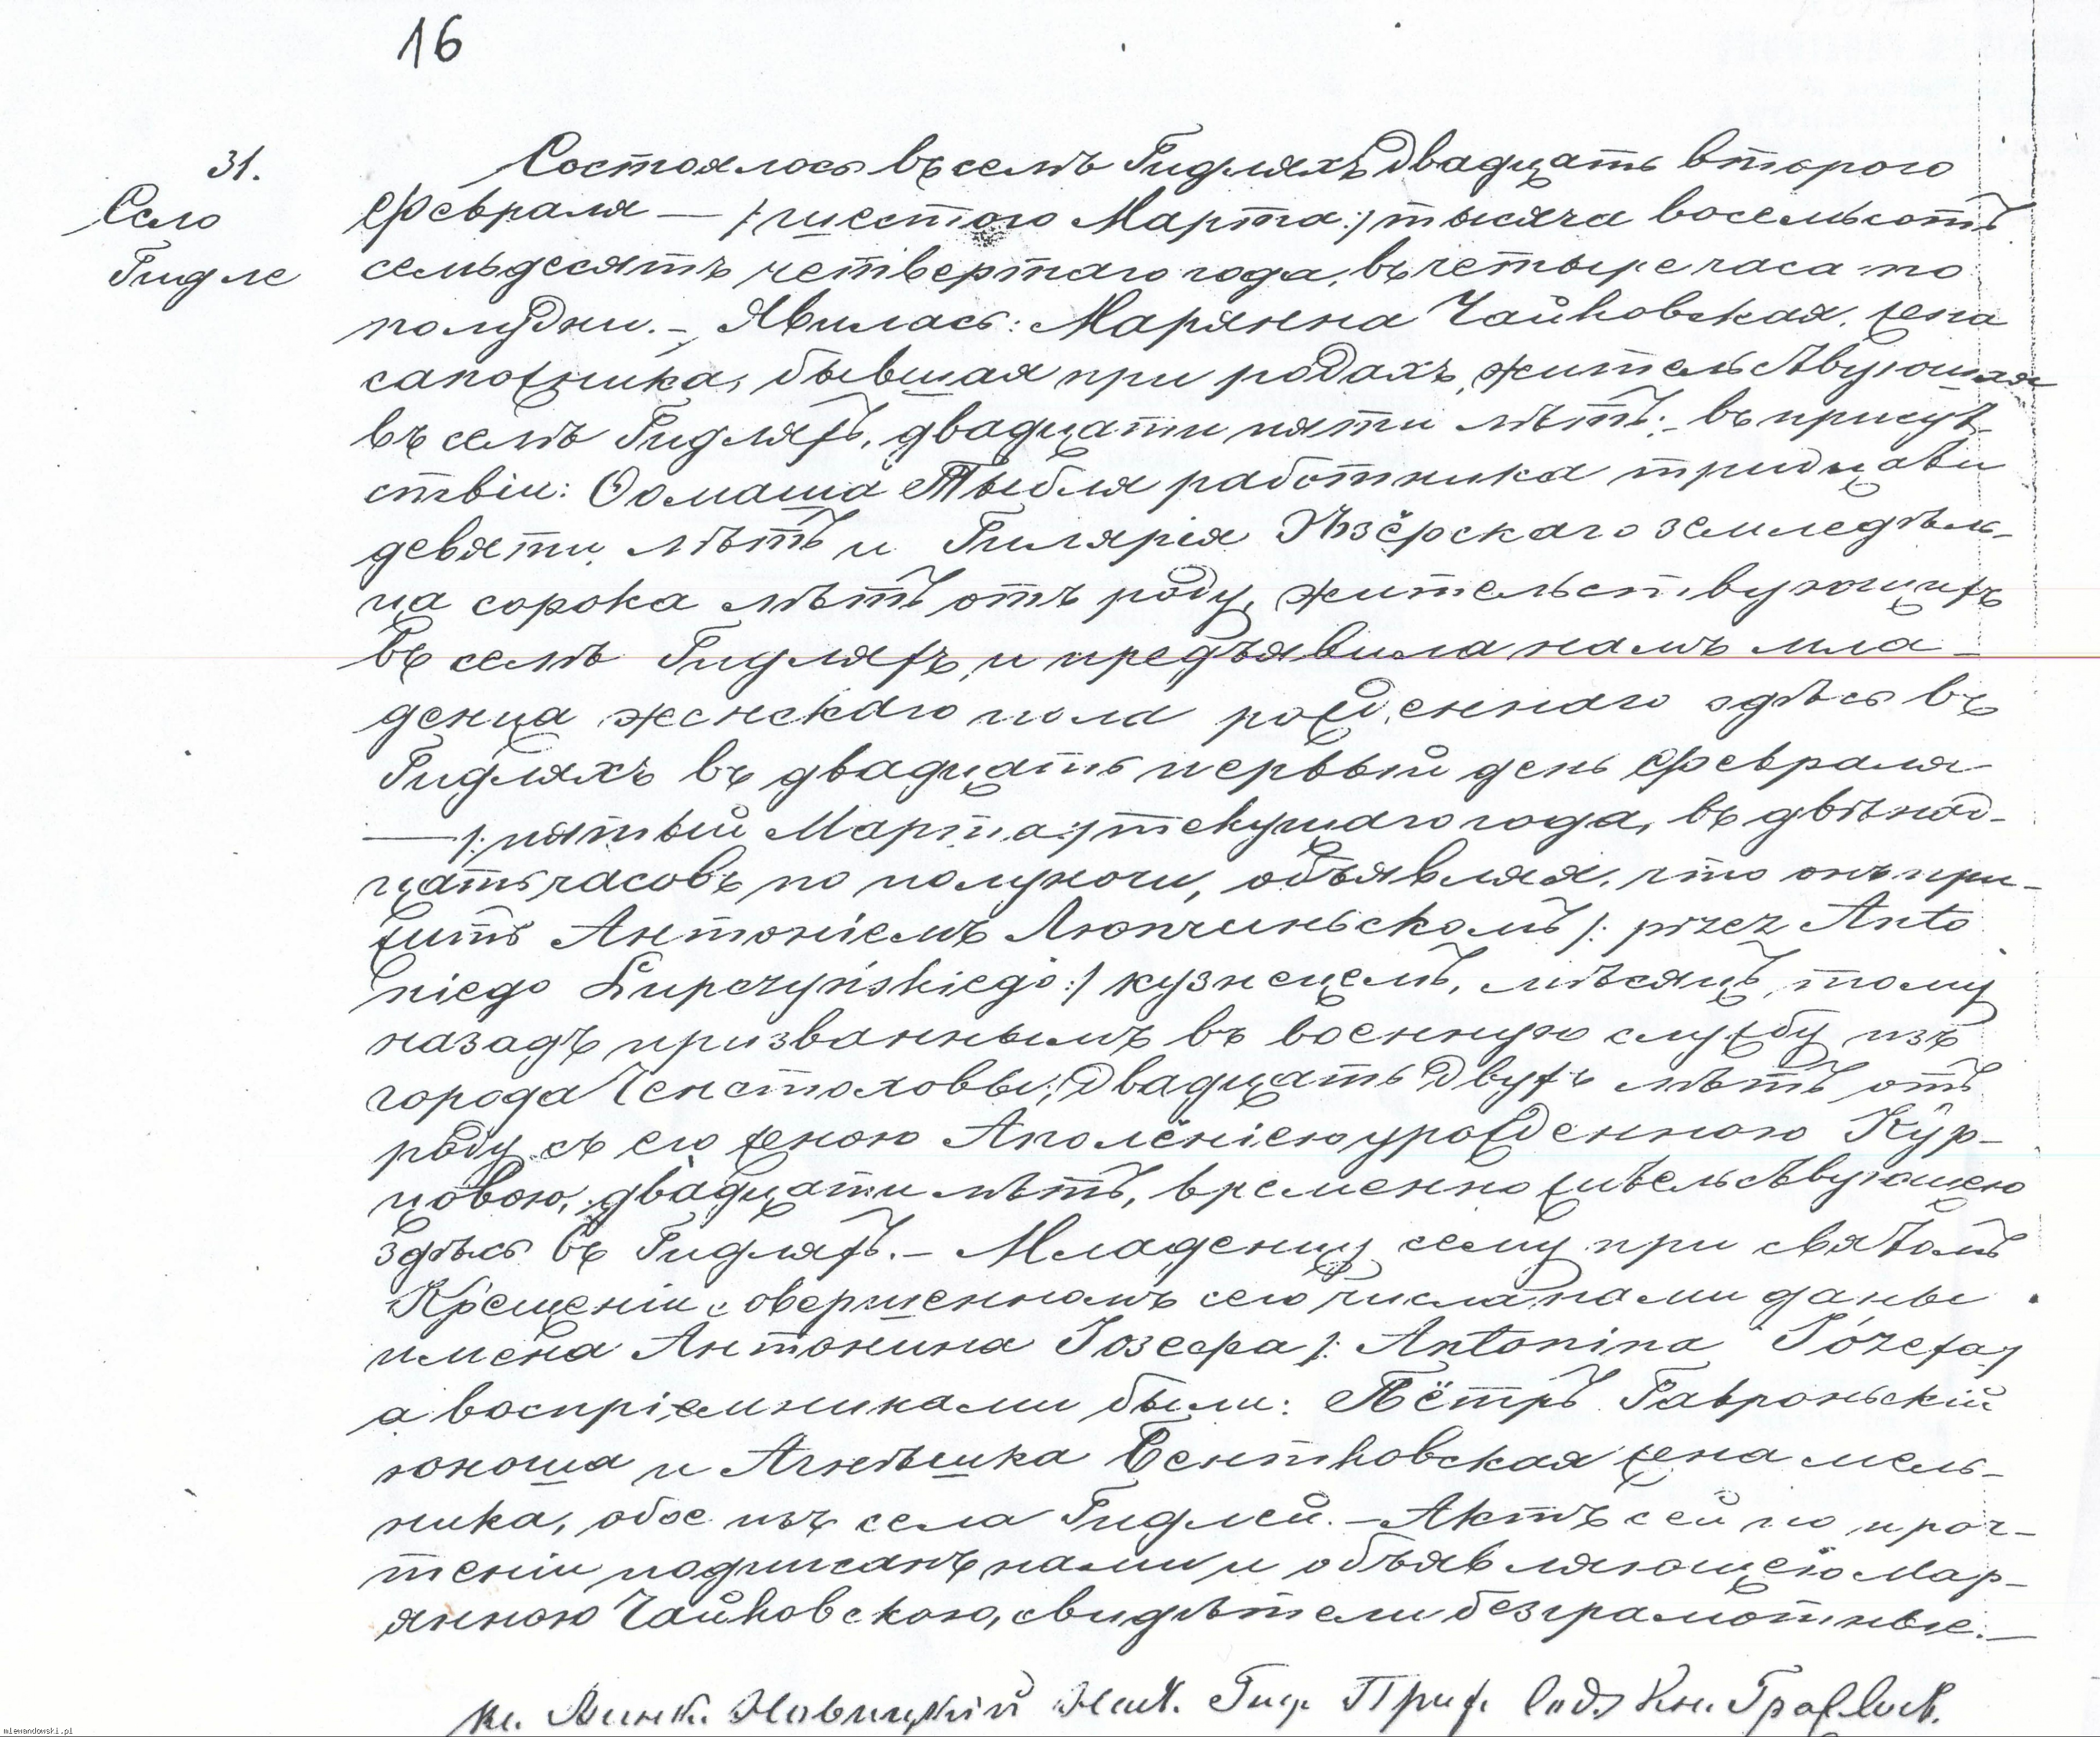 16
31.
Село
Гидле
Состоялось въ селѣ Гидляхъ двадцать второго
Февраля — /: шестого Марта :/ тысяча восемьсотъ
семьдесятъ четвертаго года, въ четыре часа по
полудни. – Явилась: Марянна Чайковская, жена
сапожника, бывшая при родахъ, жительствующая
въ селѣ Гидляхъ, двадцати пяти лѣтъ; – въ присут-
ствіи: Ѳомаша Тыбля работника тридцати
девяти лѣтъ и Гилярія Ѣзёрскаго земледѣль-
ца сорока лѣтъ отъ роду, жительствующихъ
въ селѣ Гидляхъ, и предъявила намъ мла-
денца женскаго пола рожденнаго здѣсь въ
Гидляхъ въ двадцать первый день Февраля
— /: пятый Марта :/ текущаго года, въ двѣнад-
цать часовъ по полуночи, объявляя, что онъ при-
житъ Антоніемъ Люпчиньскомъ /: przez Anto
niego Łupczyńskiego :/ кузнецемъ, мѣсяцъ тому
назадъ призваннымъ въ военную службу изъ
города Ченстоховы, двадцать двухъ лѣтъ отъ
роду съ его женою Аполёніею урожденною Кур-
цовою, двадцати лѣтъ, временно жительствующею
здѣсь въ Гидляхъ. – Младенцу сему при святомъ
Крещеніи совершенномъ сего числа нами даны
имена Антонина Іозефа /: Antonina Józefa :/
а воспріемниками были: Пётръ Гавроньскій
юноша и Агнѣшка Бентковская жена мель-
ника, обое изъ села Гидлей. – Актъ сей по проч-
теніи подписанъ нами и объявляющею Мар-
янною Чайковскою, свидѣтели безграмотные. –
Кс. Новицкій Гид. Приф.
mlewandowski.pl